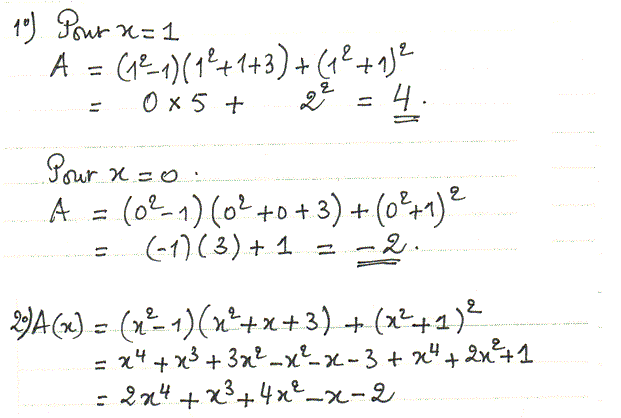 1°) Pour x=1
A = (1²-1)(1²+1+3)+(1²+1)²
= 0×5 + 2² = 4.
Pour x=0.
A = (0²-1)(0²+0+3)+(0²+1)²
= (-1)(3)+1 = -2.
2°) A(x) = (x²-1)(x²+x+3) + (x²+1)²
= x⁴+x³+3x²-x²-x-3+x⁴+2x²+1
= 2x⁴+x³+4x²-x-2